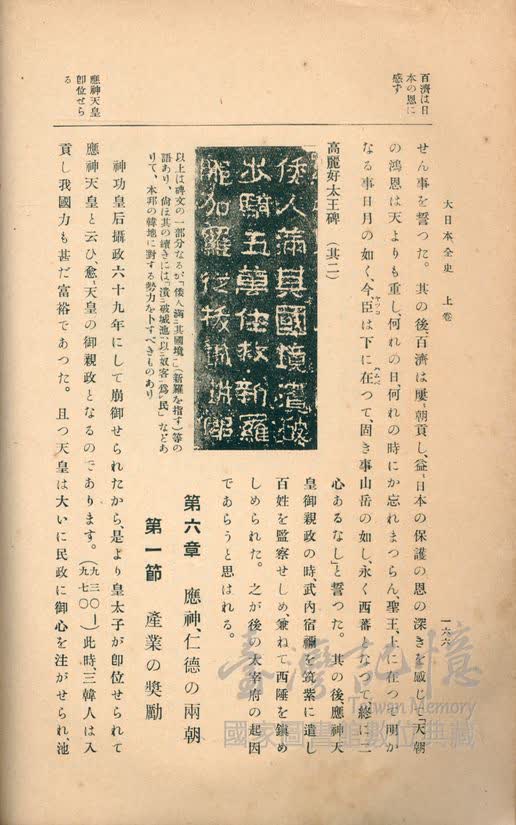 大日本全史 上卷
一六六
百濟は日
本の恩に
感ず
應神天皇
卽位せら
る
せん事を誓つた。其の後、百濟は屢〻朝貢し、益〻日本の保護の恩の深きを感じ、「天朝
の鴻恩は天よりも重し、何れの日、何れの時にか忘れまつらん、聖王、上に在つて明か
なる事日月の如く、今、臣は下に在つて、固き事山岳の如し、永く西蕃となつて終に二
心あるなし」と誓つた。其の後、應神天
皇御親政の時、武內宿禰を筑紫に遣し
百姓を監察せしめ、兼ねて西陲を鎭め
しめられた。之が後の太宰府の起因
であらうと思はれる。
高麗好太王碑 (其二)
倭人滿其國境潰破
步騎五萬住救新羅
任加羅從拔城
以上は碑文の一部分なるが「倭人滿其國境」(新羅を指す)等の
語あり、尙ほ其の續きには「潰破城池以奴客爲民」などあ
りて、本邦の韓地に對する勢力を卜すべきものあり
第六章 應神、仁德の兩朝
第一節 產業の奬勵
神功皇后攝政六十九年にして崩御せられたから、是より皇太子が卽位せられて
應神天皇と云ひ、愈〻天皇の御親政となるのであります。(九三〇—九七〇)此時、三韓人は入
貢し我國力も甚だ富裕であつた。且つ天皇は大いに民政に御心を注がせられ、池
臺灣記憶
Taiwan Memory
國家圖書館數位典藏